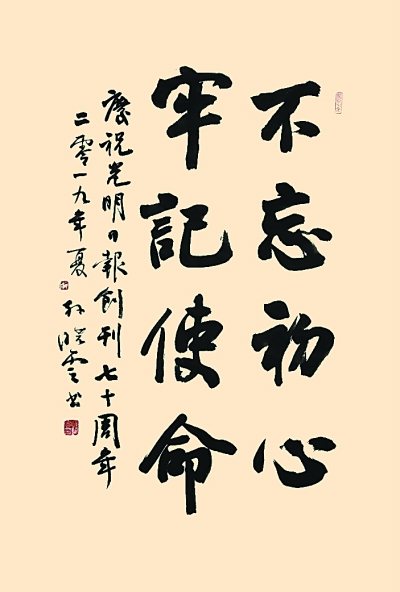 不忘初心
牢記使命
慶祝光明日報創刊七十周年
二零一九年夏 孙曉雲書